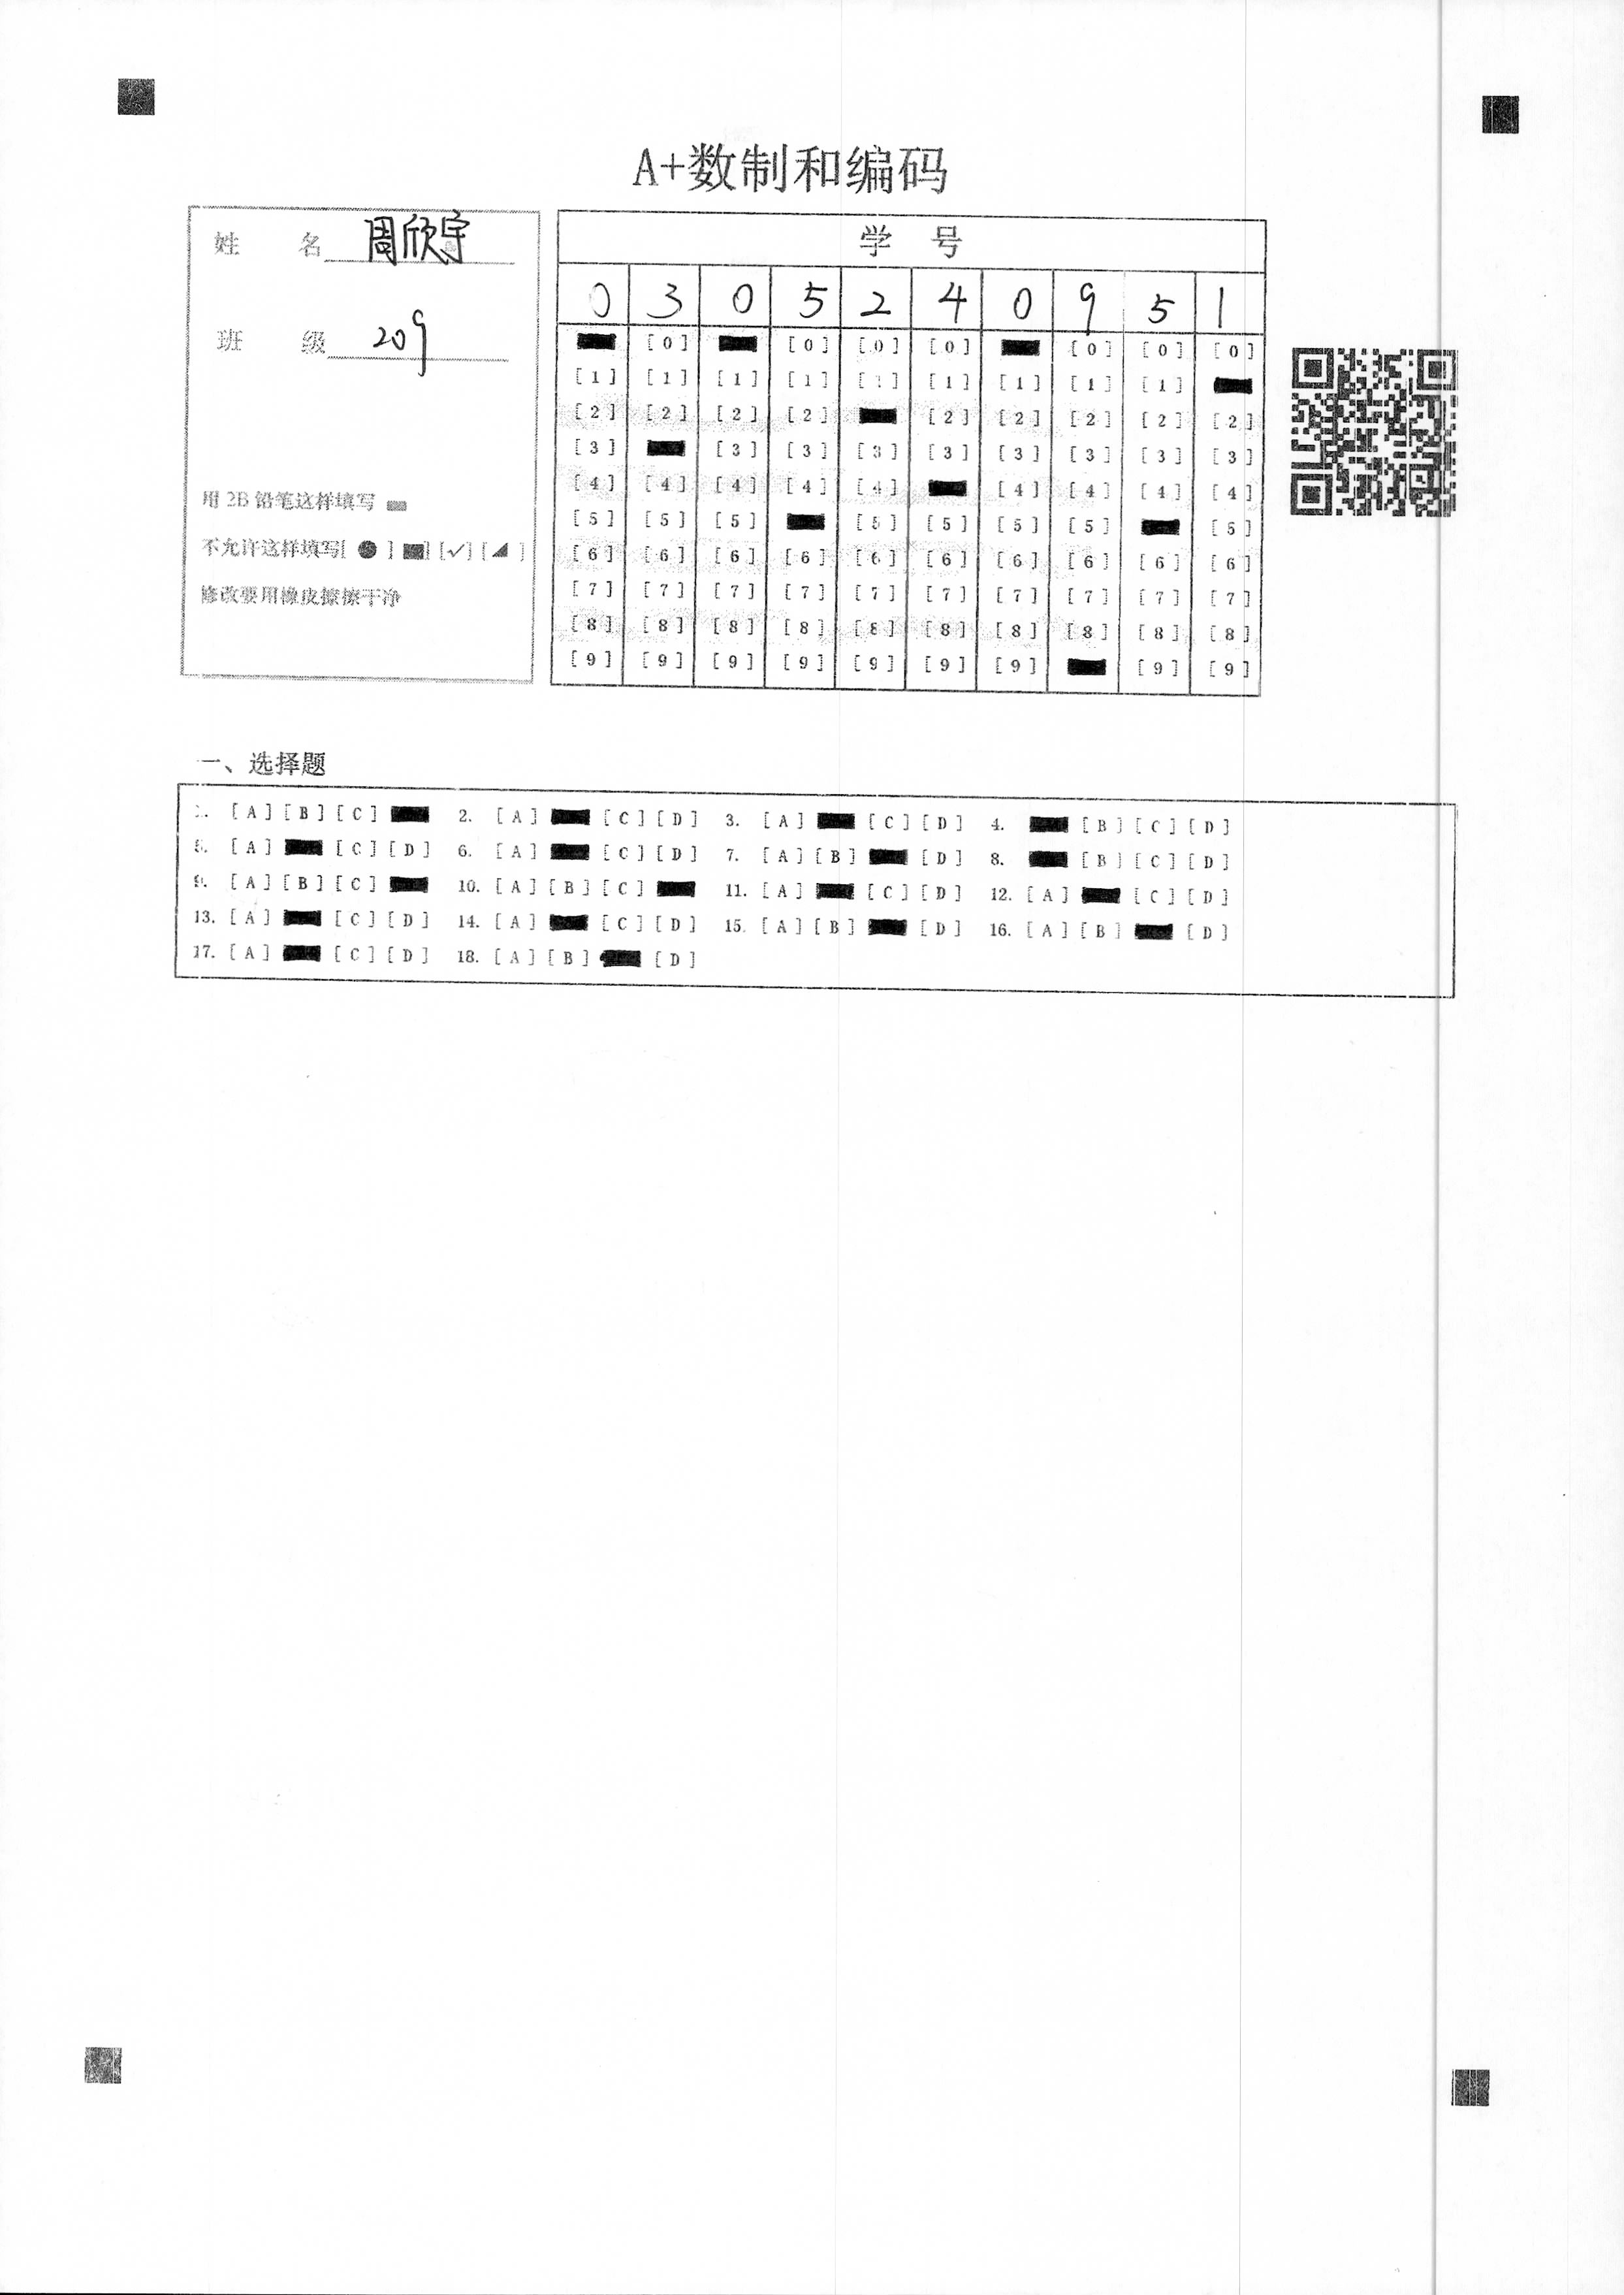 A+数制和编码
姓 名 周欣宇
班 级 209
用 2B 铅笔这样填写
不允许这样填写[ ● ] [■] [✓] [◢ ]
修改要用橡皮擦擦干净
学 号
0 3 0 5 2 4 0 9 5 1
[0] [0] [0] [0] [0] [0] [0]
[1] [1] [1] [1] [1] [1] [1] [1] [1]
[2] [2] [2] [2] [2] [2] [2] [2] [2]
[3] [3] [3] [3] [3] [3] [3] [3] [3]
[4] [4] [4] [4] [4] [4] [4] [4] [4]
[5] [5] [5] [5] [5] [5] [5] [5]
[6] [6] [6] [6] [6] [6] [6] [6] [6] [6]
[7] [7] [7] [7] [7] [7] [7] [7] [7] [7]
[8] [8] [8] [8] [8] [8] [8] [8] [8] [8]
[9] [9] [9] [9] [9] [9] [9] [9] [9]
一、选择题
1. [A] [B] [C] 2. [A] [C] [D] 3. [A] [C] [D] 4. [B] [C] [D]
5. [A] [C] [D] 6. [A] [C] [D] 7. [A] [B] [D] 8. [B] [C] [D]
9. [A] [B] [C] 10. [A] [B] [C] 11. [A] [C] [D] 12. [A] [C] [D]
13. [A] [C] [D] 14. [A] [C] [D] 15. [A] [B] [D] 16. [A] [B] [D]
17. [A] [C] [D] 18. [A] [B] [D]